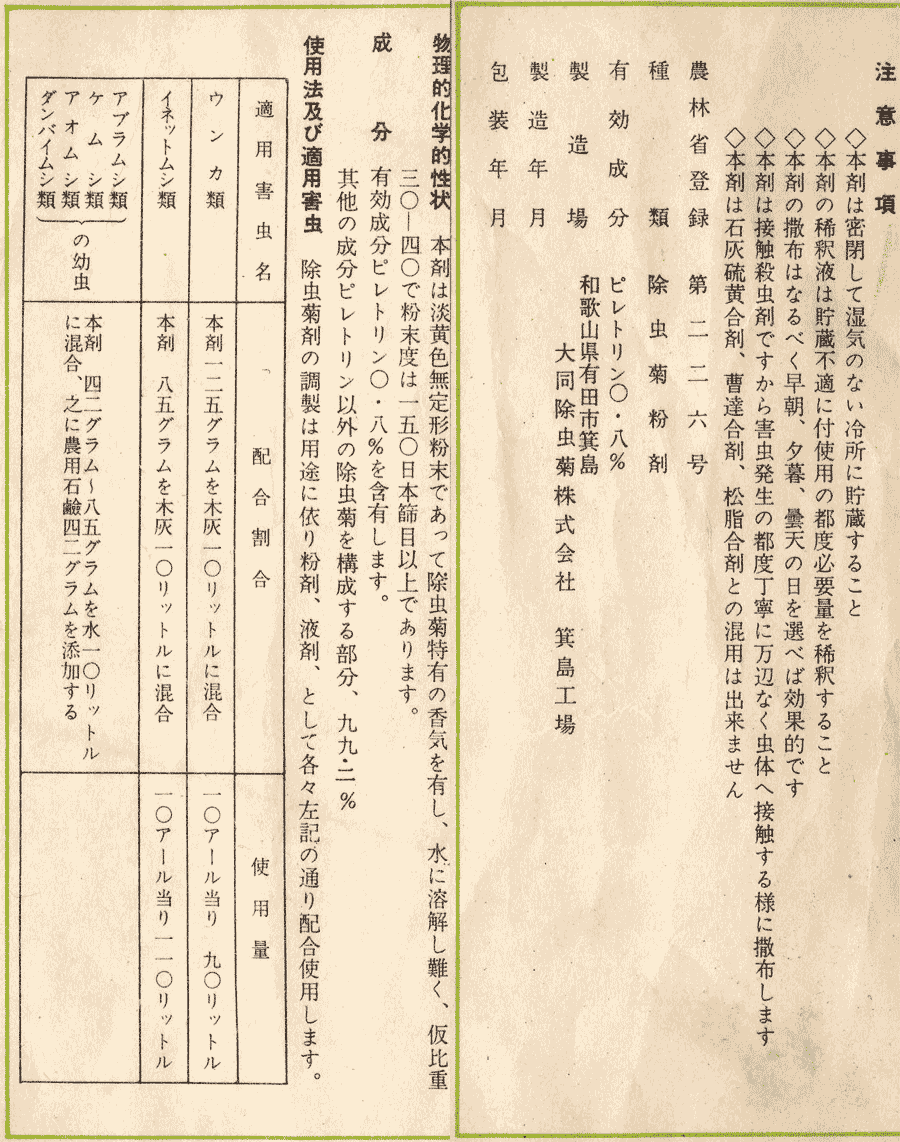 注意事項
◇本剤は密閉して湿気のない冷所に貯蔵すること
◇本剤の稀釈液は貯蔵不適に付使用の都度必要量を稀釈すること
◇本剤の撒布はなるべく早朝、夕暮、曇天の日を選べば効果的です
◇本剤は接触殺虫剤ですから害虫発生の都度丁寧に万辺なく虫体へ接触する様に撒布します
◇本剤は石灰硫黄合剤、曹達合剤、松脂合剤との混用は出来ません
農林省登録 第二二六号
種類 除虫菊粉剤
有効成分 ピレトリン〇・八%
製造場 和歌山県有田市箕島
大同除虫菊株式会社 箕島工場
製造年月
包装年月
物理的化学的性状 本剤は淡黄色無定形粉末であって除虫菊特有の香気を有し、水に溶解し難く、仮比重
三〇—四〇で粉末度は一五〇日本篩目以上であります。
成分 有効成分ピレトリン〇・八%を含有します。
其他の成分ピレトリン以外の除虫菊を構成する部分、九九・二%
使用法及び適用害虫 除虫菊剤の調製は用途に依り粉剤、液剤、として各々左記の通り配合使用します。
適用害虫名 配合割合 使用量
ウンカ類 本剤一二五グラムを木灰一〇リットルに混合 一〇アール当り 九〇リットル
イネットムシ類 本剤 八五グラムを木灰一〇リットルに混合 一〇アール当り一一〇リットル
アブラムシ類
ケムシ類
アオムシ類
ダンバイムシ類
の幼虫
本剤 四二グラム〜八五グラムを水一〇リットル
に混合、之に農用石鹼四二グラムを添加する